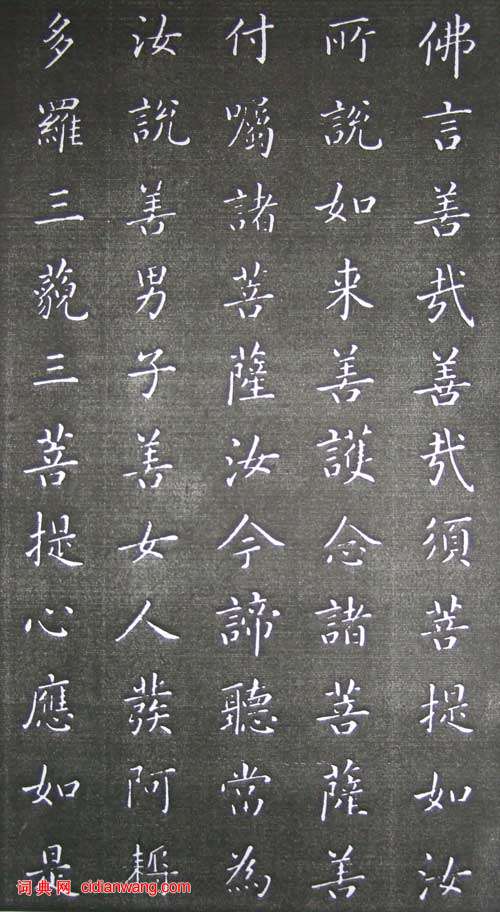 佛言善哉善哉須菩提如汝
所說如来善護念諸菩薩善
付囑諸菩薩汝今諦聽當為
汝說善男子善女人發阿耨
多羅三藐三菩提心應如是
词典网 cidianwang.com